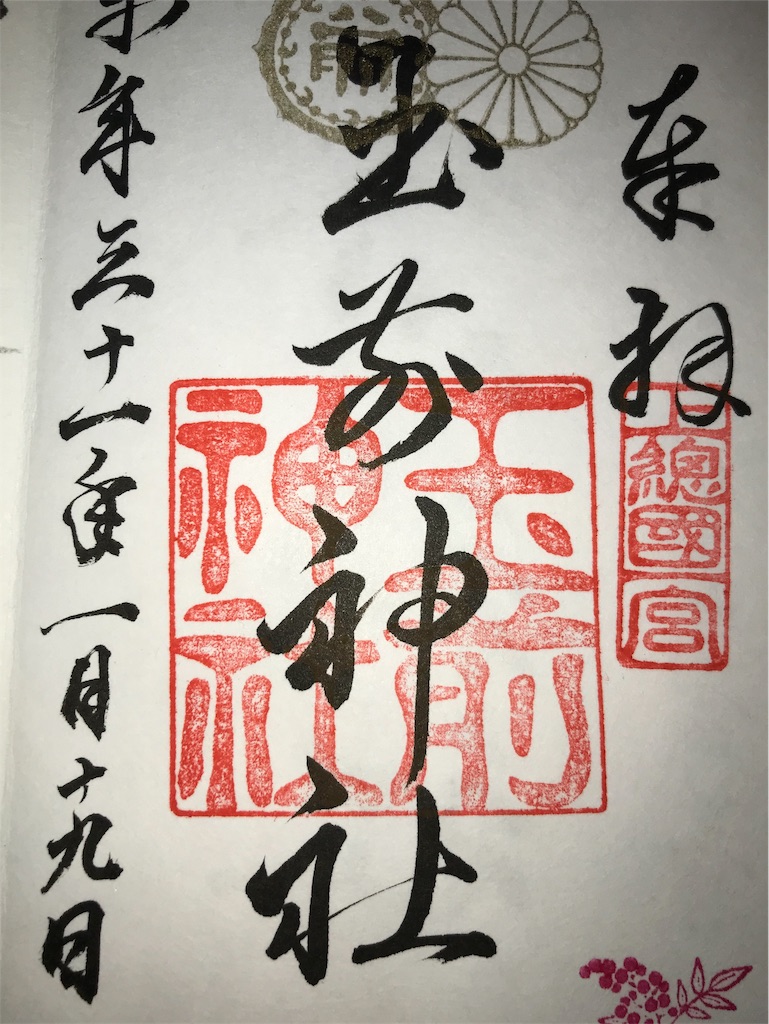 奉拝
上總國一宮
玉前神社
玉前神社
年三十一年一月十九日